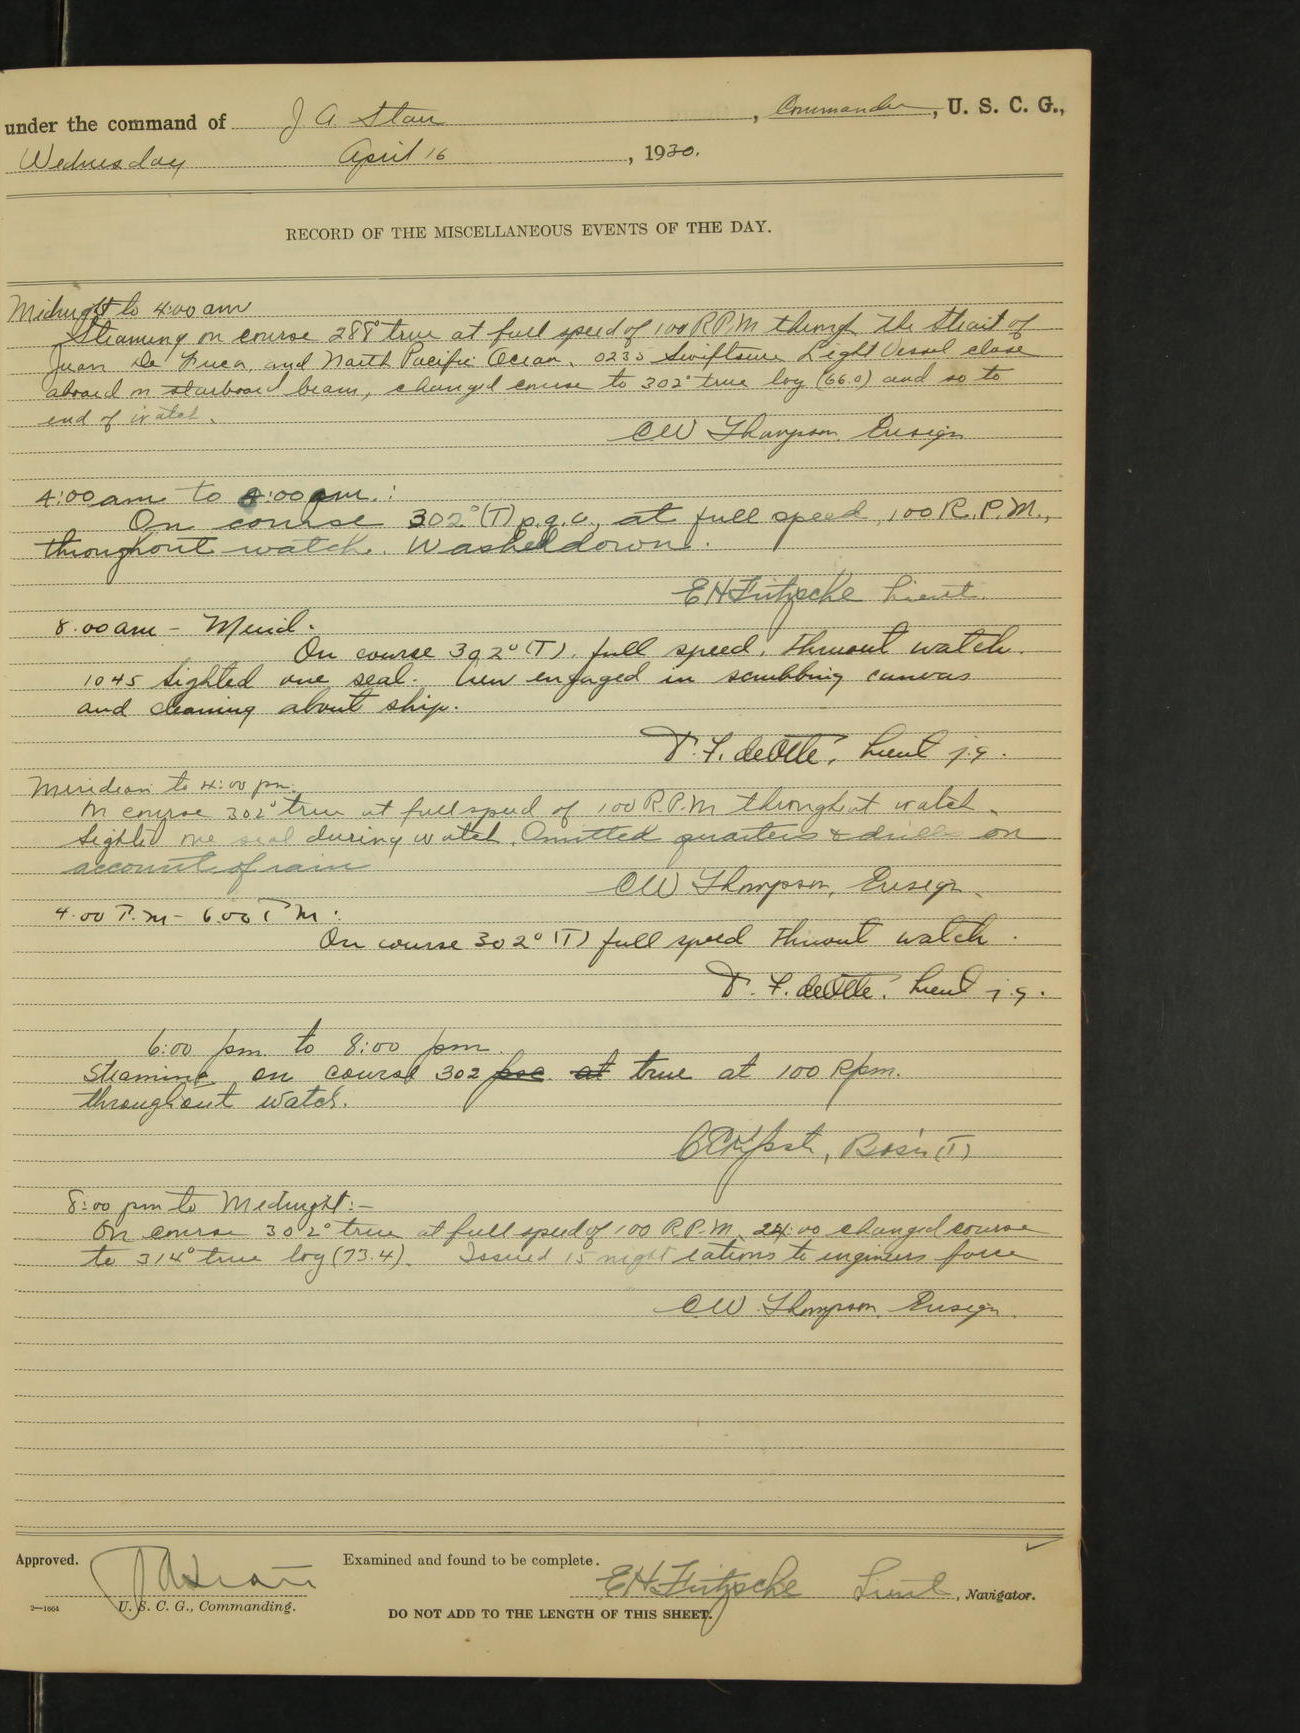 under the command of J A Starr, Commander, U. S. C. G.,
Wednesday April 16, 1930.
RECORD OF THE MISCELLANEOUS EVENTS OF THE DAY.
Midnight to 4:00 am
Steaming on course 288° true at full speed of 100 R.P.M through The Strait of
Juan De Fuca and North Pacific Ocean. 0230 Swiftsure Light Vessel close
aboard on starboard beam, changed course to 302° true log (66.0) and so to
end of watch.
CW Thompson Ensign
4:00 am to 8:00 am.:
On course 302° (T) p.g.c., at full speed, 100 R.P.M.,
throughout watch. Washed down.
EH Fritzsche Lieut.
8.00 am - Merid.
On course 302° (T). full speed, thruout watch.
1045 Sighted one seal. Crew engaged in scrubbing canvas
and cleaning about ship.
F. deOtte, Lieut j.g.
Meridian to 4:00 pm.
On course 302° true at full speed of 100 R.P.M throughout watch.
Sighted one seal during watch. Omitted quarters & drills on
account of rain
CW Thompson, Ensign.
4.00 P.M - 6.00 P M.
On course 302° (T) full speed thruout watch.
F. deOtte. Lieut j.g.
6:00 pm. to 8:00 pm.
Steaming on course 302 psc at true at 100 Rpm.
throughout watch.
Bos'n (T)
8:00 pm to Midnight:-
On course 302° true at full speed of 100 R.P.M. 24:00 changed course
to 314° true log (73.4). Issued 15 night rations to engineers force
C.W. Thompson, Ensign.
Approved. Examined and found to be complete.
J A Starr EH Fritzsche Lieut, Navigator.
2—1664 U. S. C. G., Commanding.
DO NOT ADD TO THE LENGTH OF THIS SHEET.